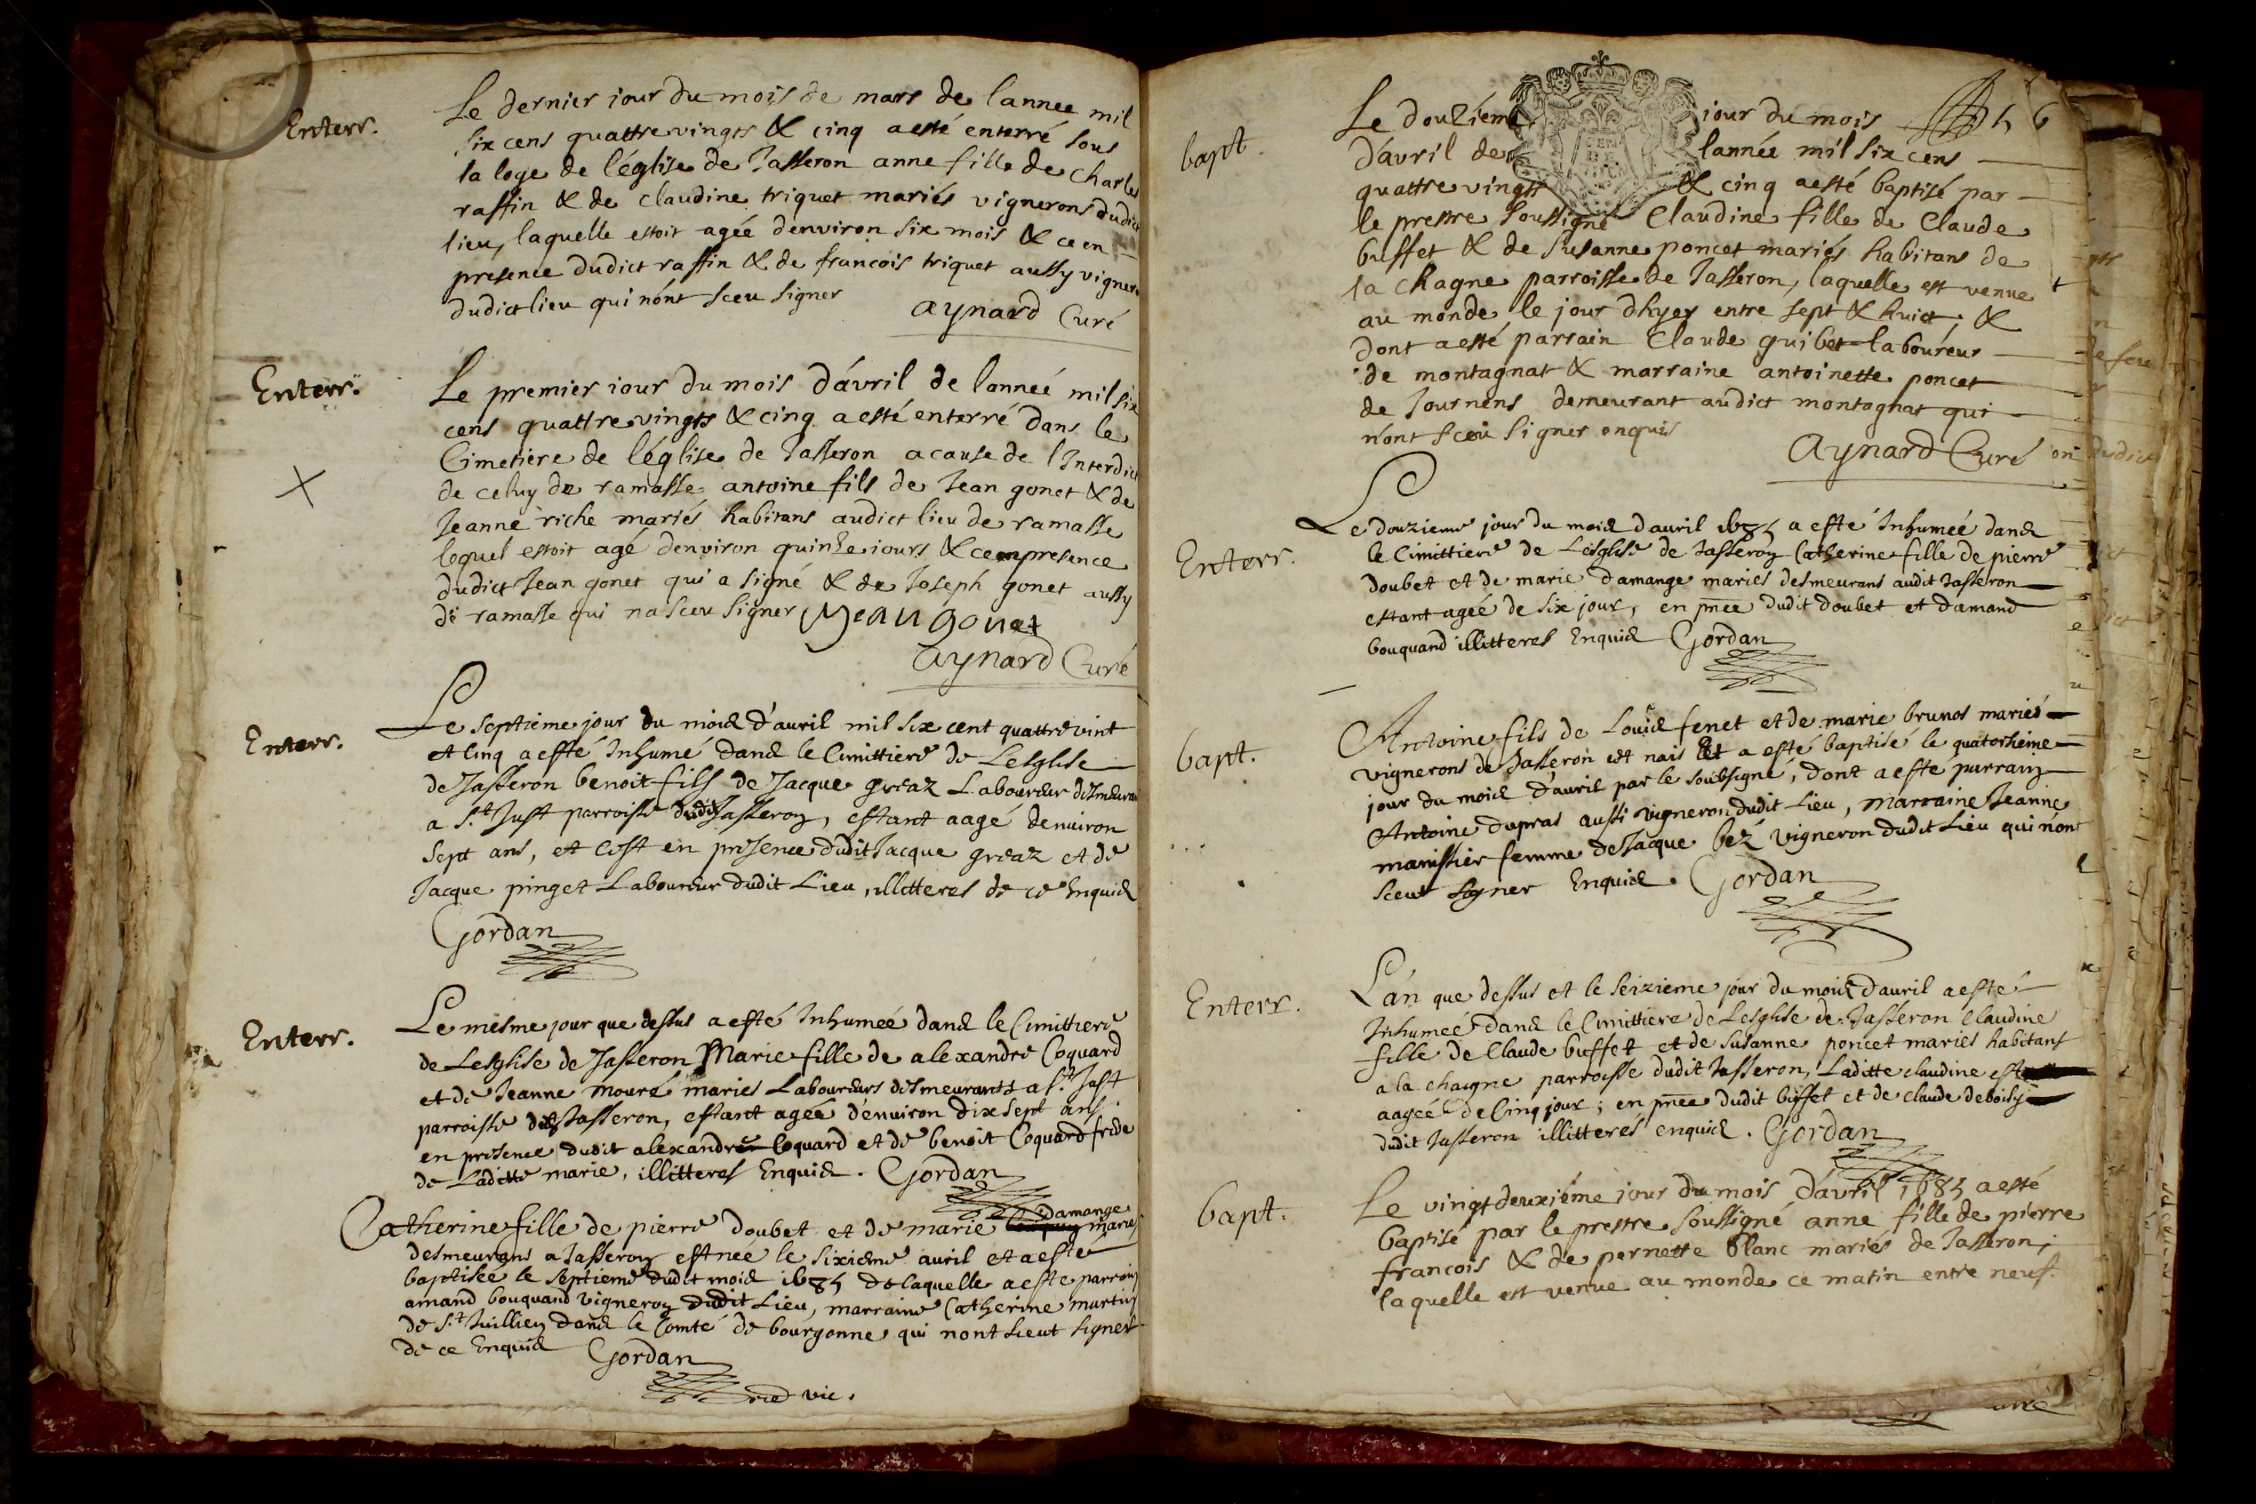 Enterr.
Le dernier iour du mois de mars de lannee mil
six cens quattre vingts & cinq a esté enterré sous
la loge de l'église de Jasseron anne fille de Charles
raffin & de claudine triquet mariés vignerons dudict
lieu, laquelle estoit agée denviron six mois & ce en
presence dudict raffin & de francois triquet aussy vigner
dudict lieu qui nónt sceu signer aynard Curé
Enterr.
Le premier iour du mois dávril de lanneé mil six
cens quattre vingts & cinq a esté enterré dans le
Cimetiere de léglise de Jasseron a cause de lInterdict
de celuy de ramasse antoine fils de Jean gonet & de
Jeanne riche mariés habitans audict lieu de ramasse
lequel estoit agé denviron quinze iours & ce en presence
dudict Jean gonet qui a signé & de Joseph gonet aussy
de ramasse qui na sceu signer Jean gonet
aynard Curé
Enterr.
Le septieme jour du mois d'auril mil six cent quattre vint
et Cinq a esté Inhumé dans le Cimittiere de Lesglise
de Jasseron benoit fils de Jacque greaz Laboureur desmeurant
a S.t Just parroisse dudit Jasseron, estant aagé denuiron
sept ans, et cest en presence dudit Jacque greaz et de
Jacque pinget Laboureur dudit Lieu, illitteres de ce Enquis
Gordan
Enterr.
Le mesme jour que dessus a esté Inhumeé dans le Cimittiere
de Lesglise de Jasseron Marie fille de alexandre Coquard
et de Jeanne mouré maries Laboureurs desmeurants a S.t Just
parroisse dud. Jasseron, estant ageé d'enuiron dix sept ans
en presence dudit alexandre Coquard et de benoit Coquard frere
de Laditte marie, illitteres Enquis. Gordan
damange
Catherine fille de pierre doubet et de marie maries
desmeurans a Jasseron est née le sixieme auril et a esté
baptisée le septieme dudit mois 1685 de laquelle a esté parrain
amand bouquand vigneron dudit Lieu, marraine Catherine martin
de S.t Juillien dans le Comté de bourgonne qui nont sceut signer
de ce Enquis Gordan
vic.
bapt.
Le douziéme iour du mois
dávril de lannée mil six cens
quattre vingts & cinq a esté baptisé par
le prestre soussigné Claudine fille de Claude
buffet & de Susanne poncet mariés habitans de
la chagne parroisse de Jasseron, laquelle est venue
au monde le jour dhyer entre sept & huict, &
dont a esté parrain Claude guibet laboureur
de montagnat & marraine antoinette poncet
de Journens demeurant audict montagnat qui
nónt sceu signer enquis aynard Curé
Enterr.
Le douzieme jour du mois dauril 1685 a esté Inhumeé dans
le Cimittiere de Lesglise de Jasseron Catherine fille de pierre
doubet et de marie damange mariés desmeurans audit Jasseron
estant ageé de six jour, en pnce dudit doubet et damand
bouquand illitteres Enquis Gordan
bapt.
Antoine fils de Louis fenet et de marie brunos mariés
vignerons de Jasseron est nais et a esté baptisé le quatorsieme
jour du mois d'auril par le soubsigné, dont a esté parrain
Antoine dupras aussi vigneron dudit Lieu, marraine Jeanne
manissier femme de Jacque bez vigneron dudit Lieu qui n'ont
sceut signer Enquis. Gordan
Enterr.
L'án que dessus et le seizieme jour du mois dauril a esté
Inhumeé dans le Cimittiere de Lesglise de Jasseron Claudine
fille de Claude buffet et de Susanne poncet mariés habitans
a la chagne parroisse dudit Jasseron, Laditte claudine est
aageé de Cinq jour; en pnce dudit buffet et de claude deboisy
dudit Jasseron illitterés enquis. Gordan
bapt.
Le vingt deuxiéme iour du mois d'ávril 1685 a esté
baptisé par le prestre soussigné anne fille de pierre
francois & de pernette blanc mariés de Jasseron,
laquelle est venue au monde ce matin entre neuf